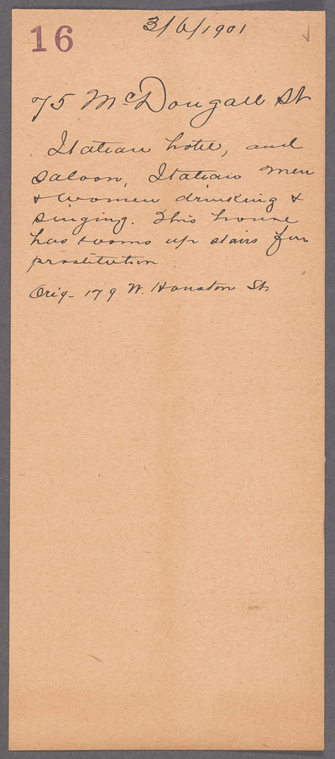 16
3/6/1901
75 McDougall St
Italian hotel, and
saloon, Italian men
& women drinking &
singing. This house
has rooms up stairs for
prostitution
Orig- 179 W. Houston St.